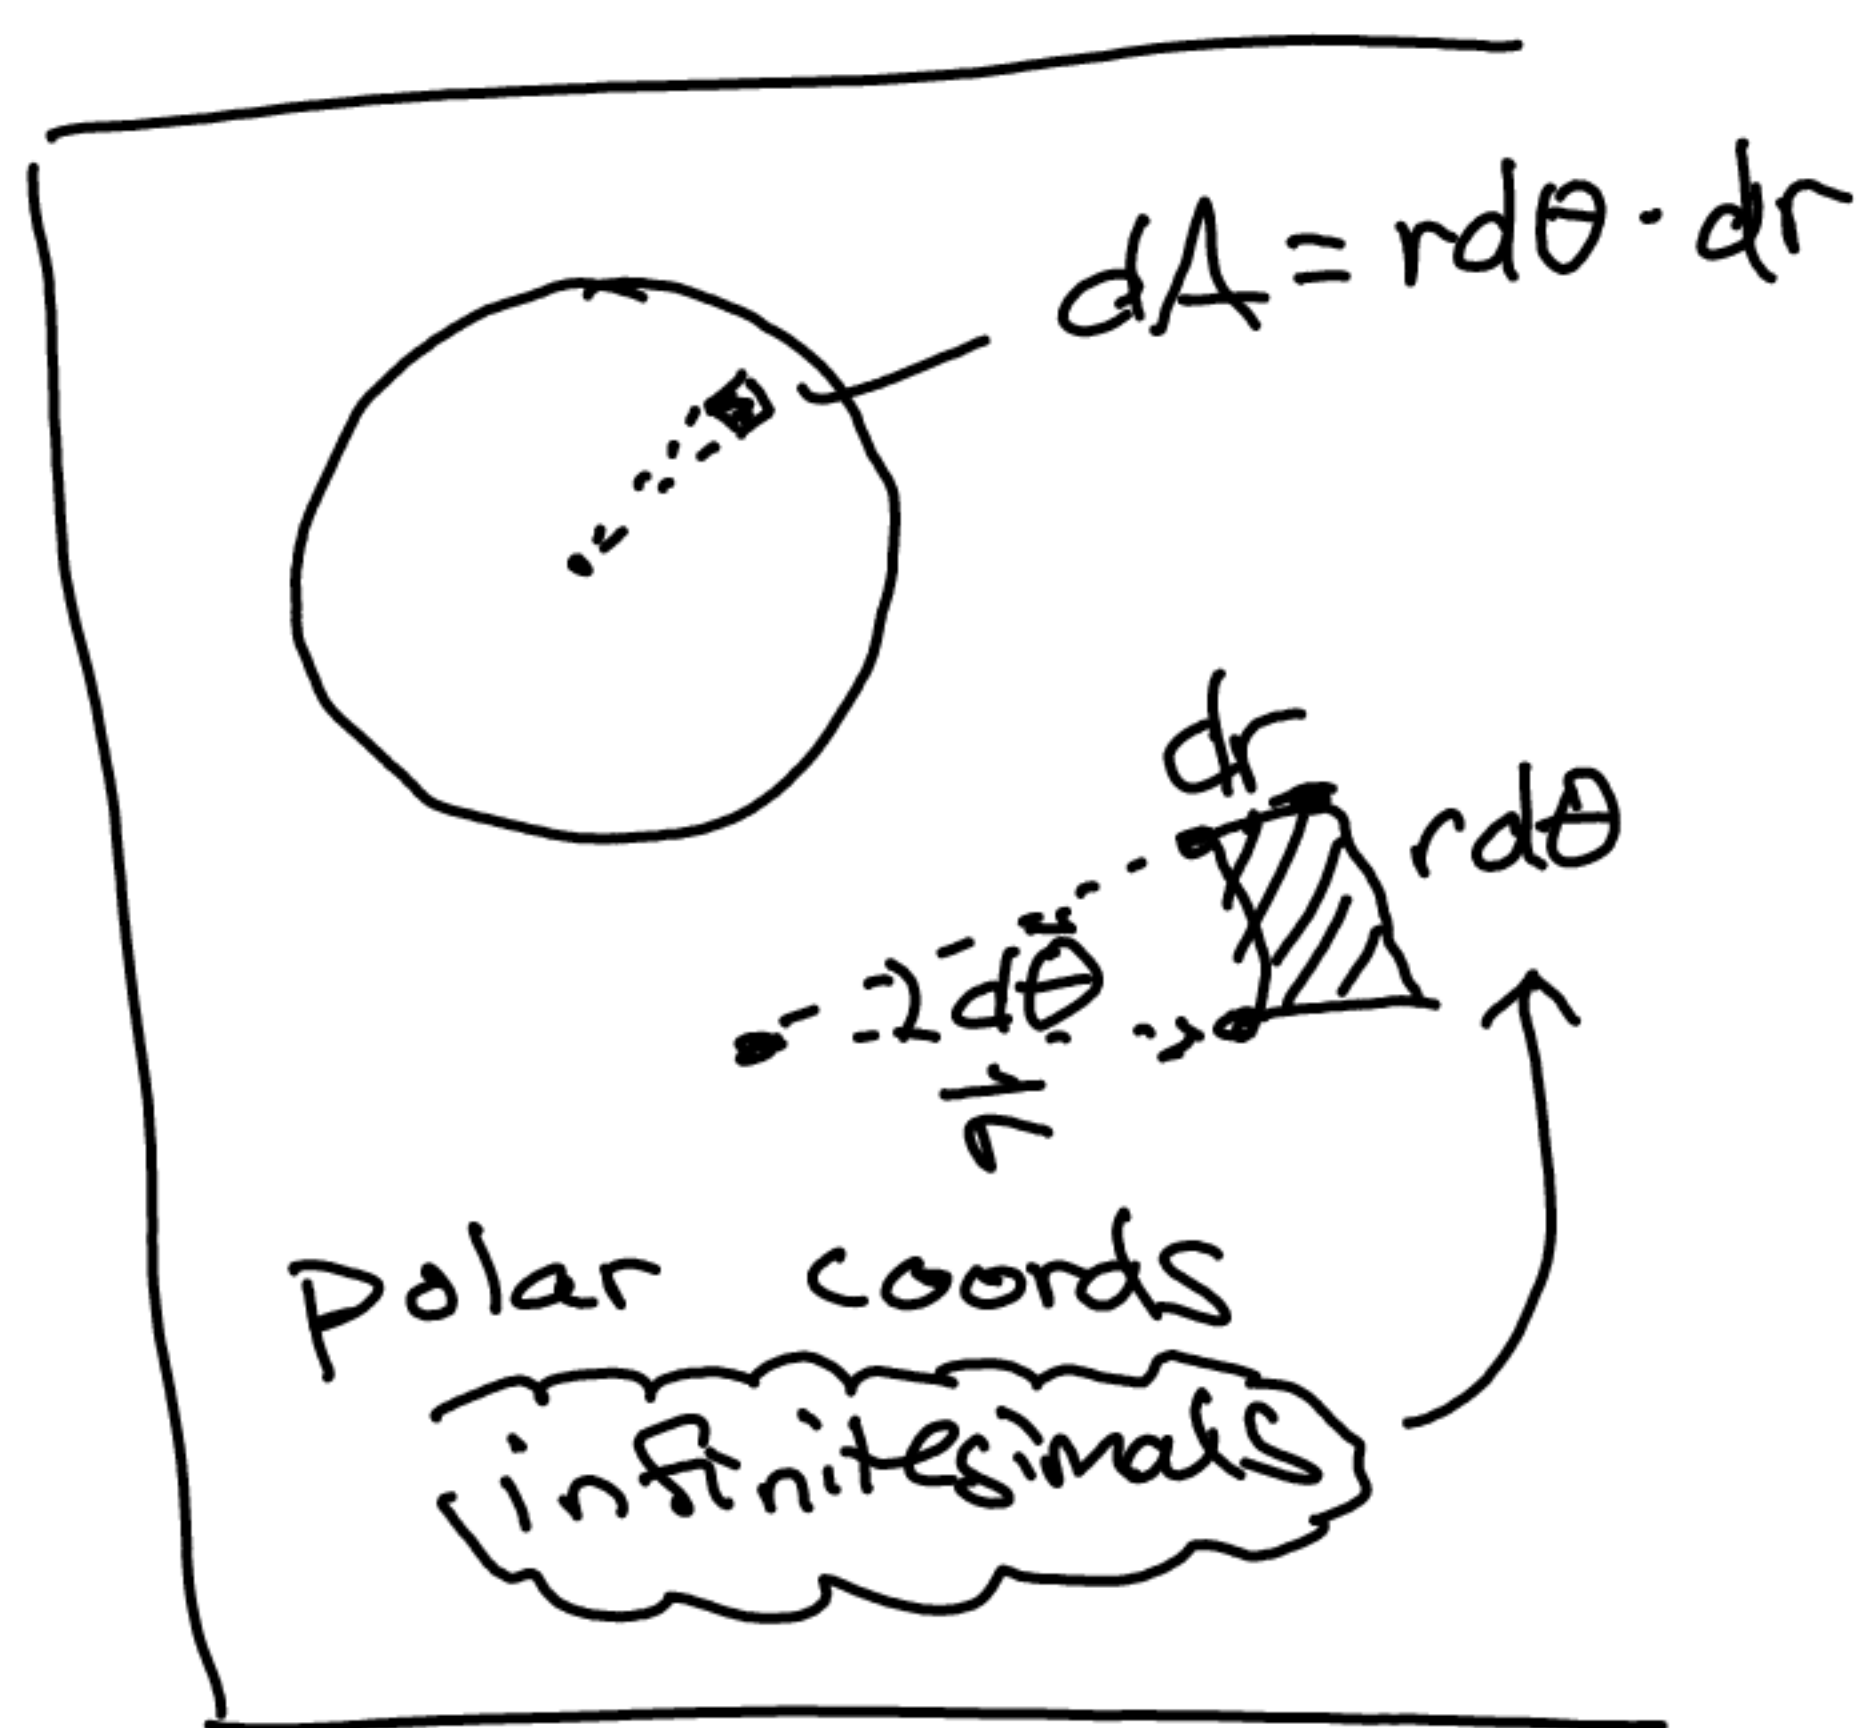 dA = rdθ · dr
dr
rdθ
dθ
r
polar coords
infinitesimals